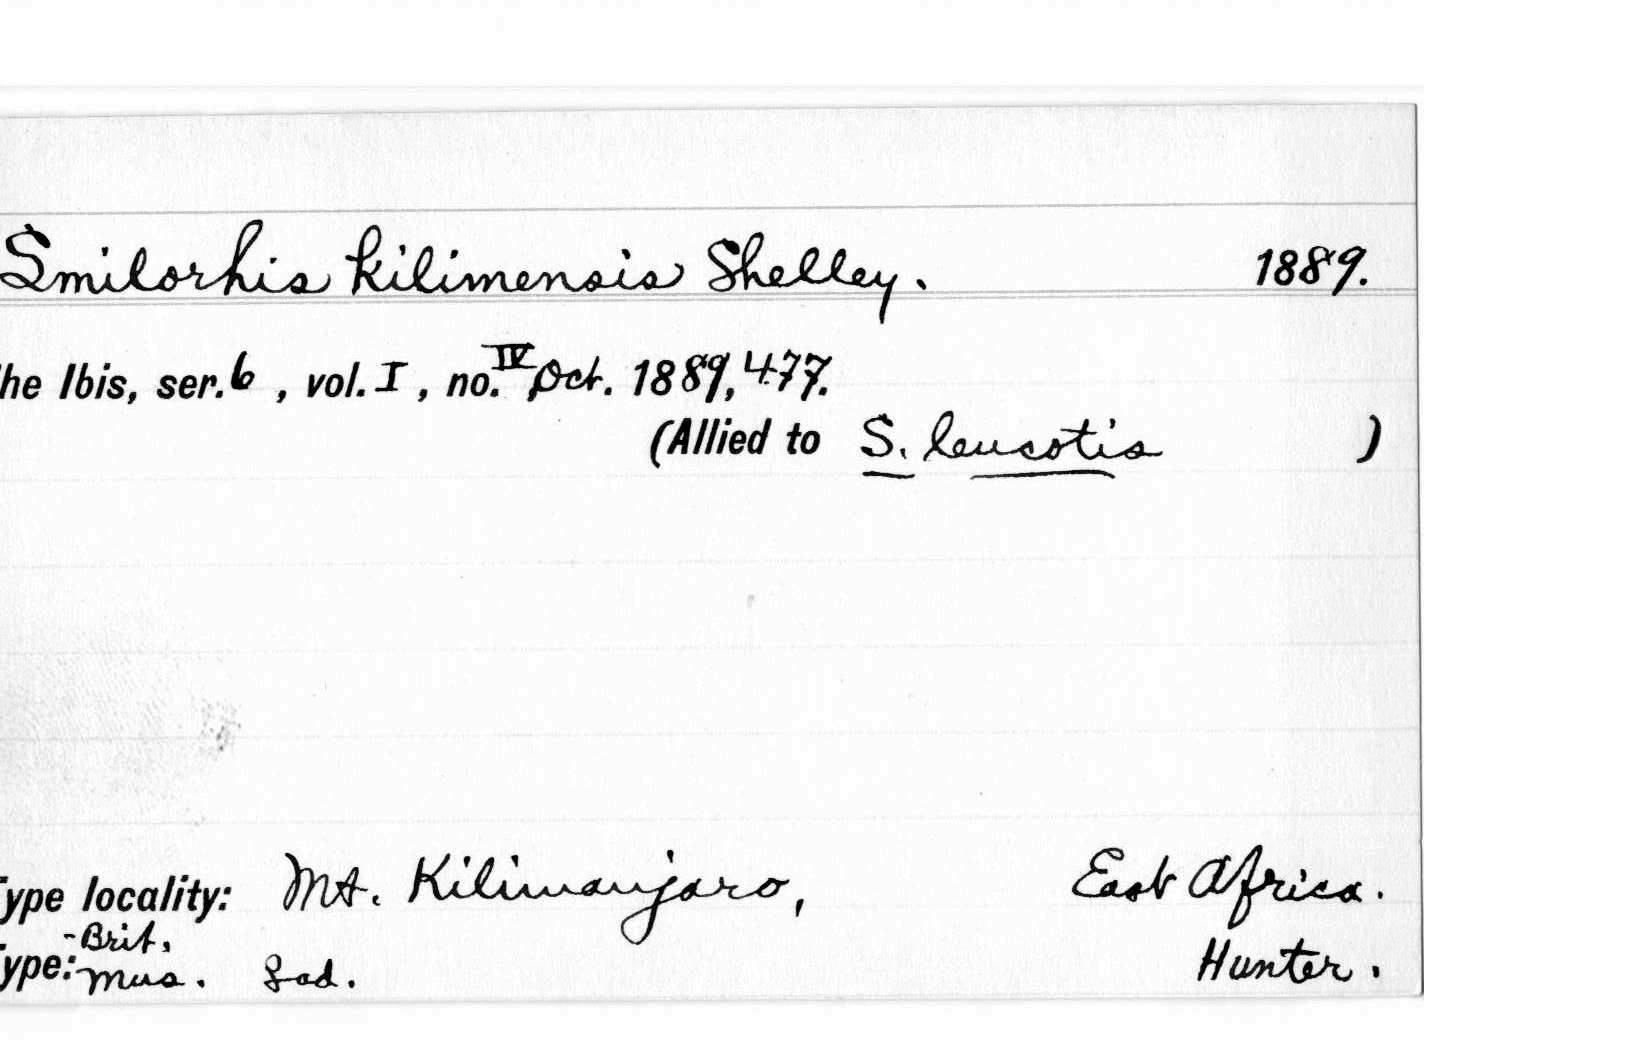 Smilorhis kilimensis Shelley. 1889.
he Ibis, ser. 6, vol. I, no. IV, Oct. 1889, 477.
(Allied to S. leucotis )
Type locality: Mt. Kilimanjaro, East Africa.
-Brit.
ype: Mus. Gad. Hunter.